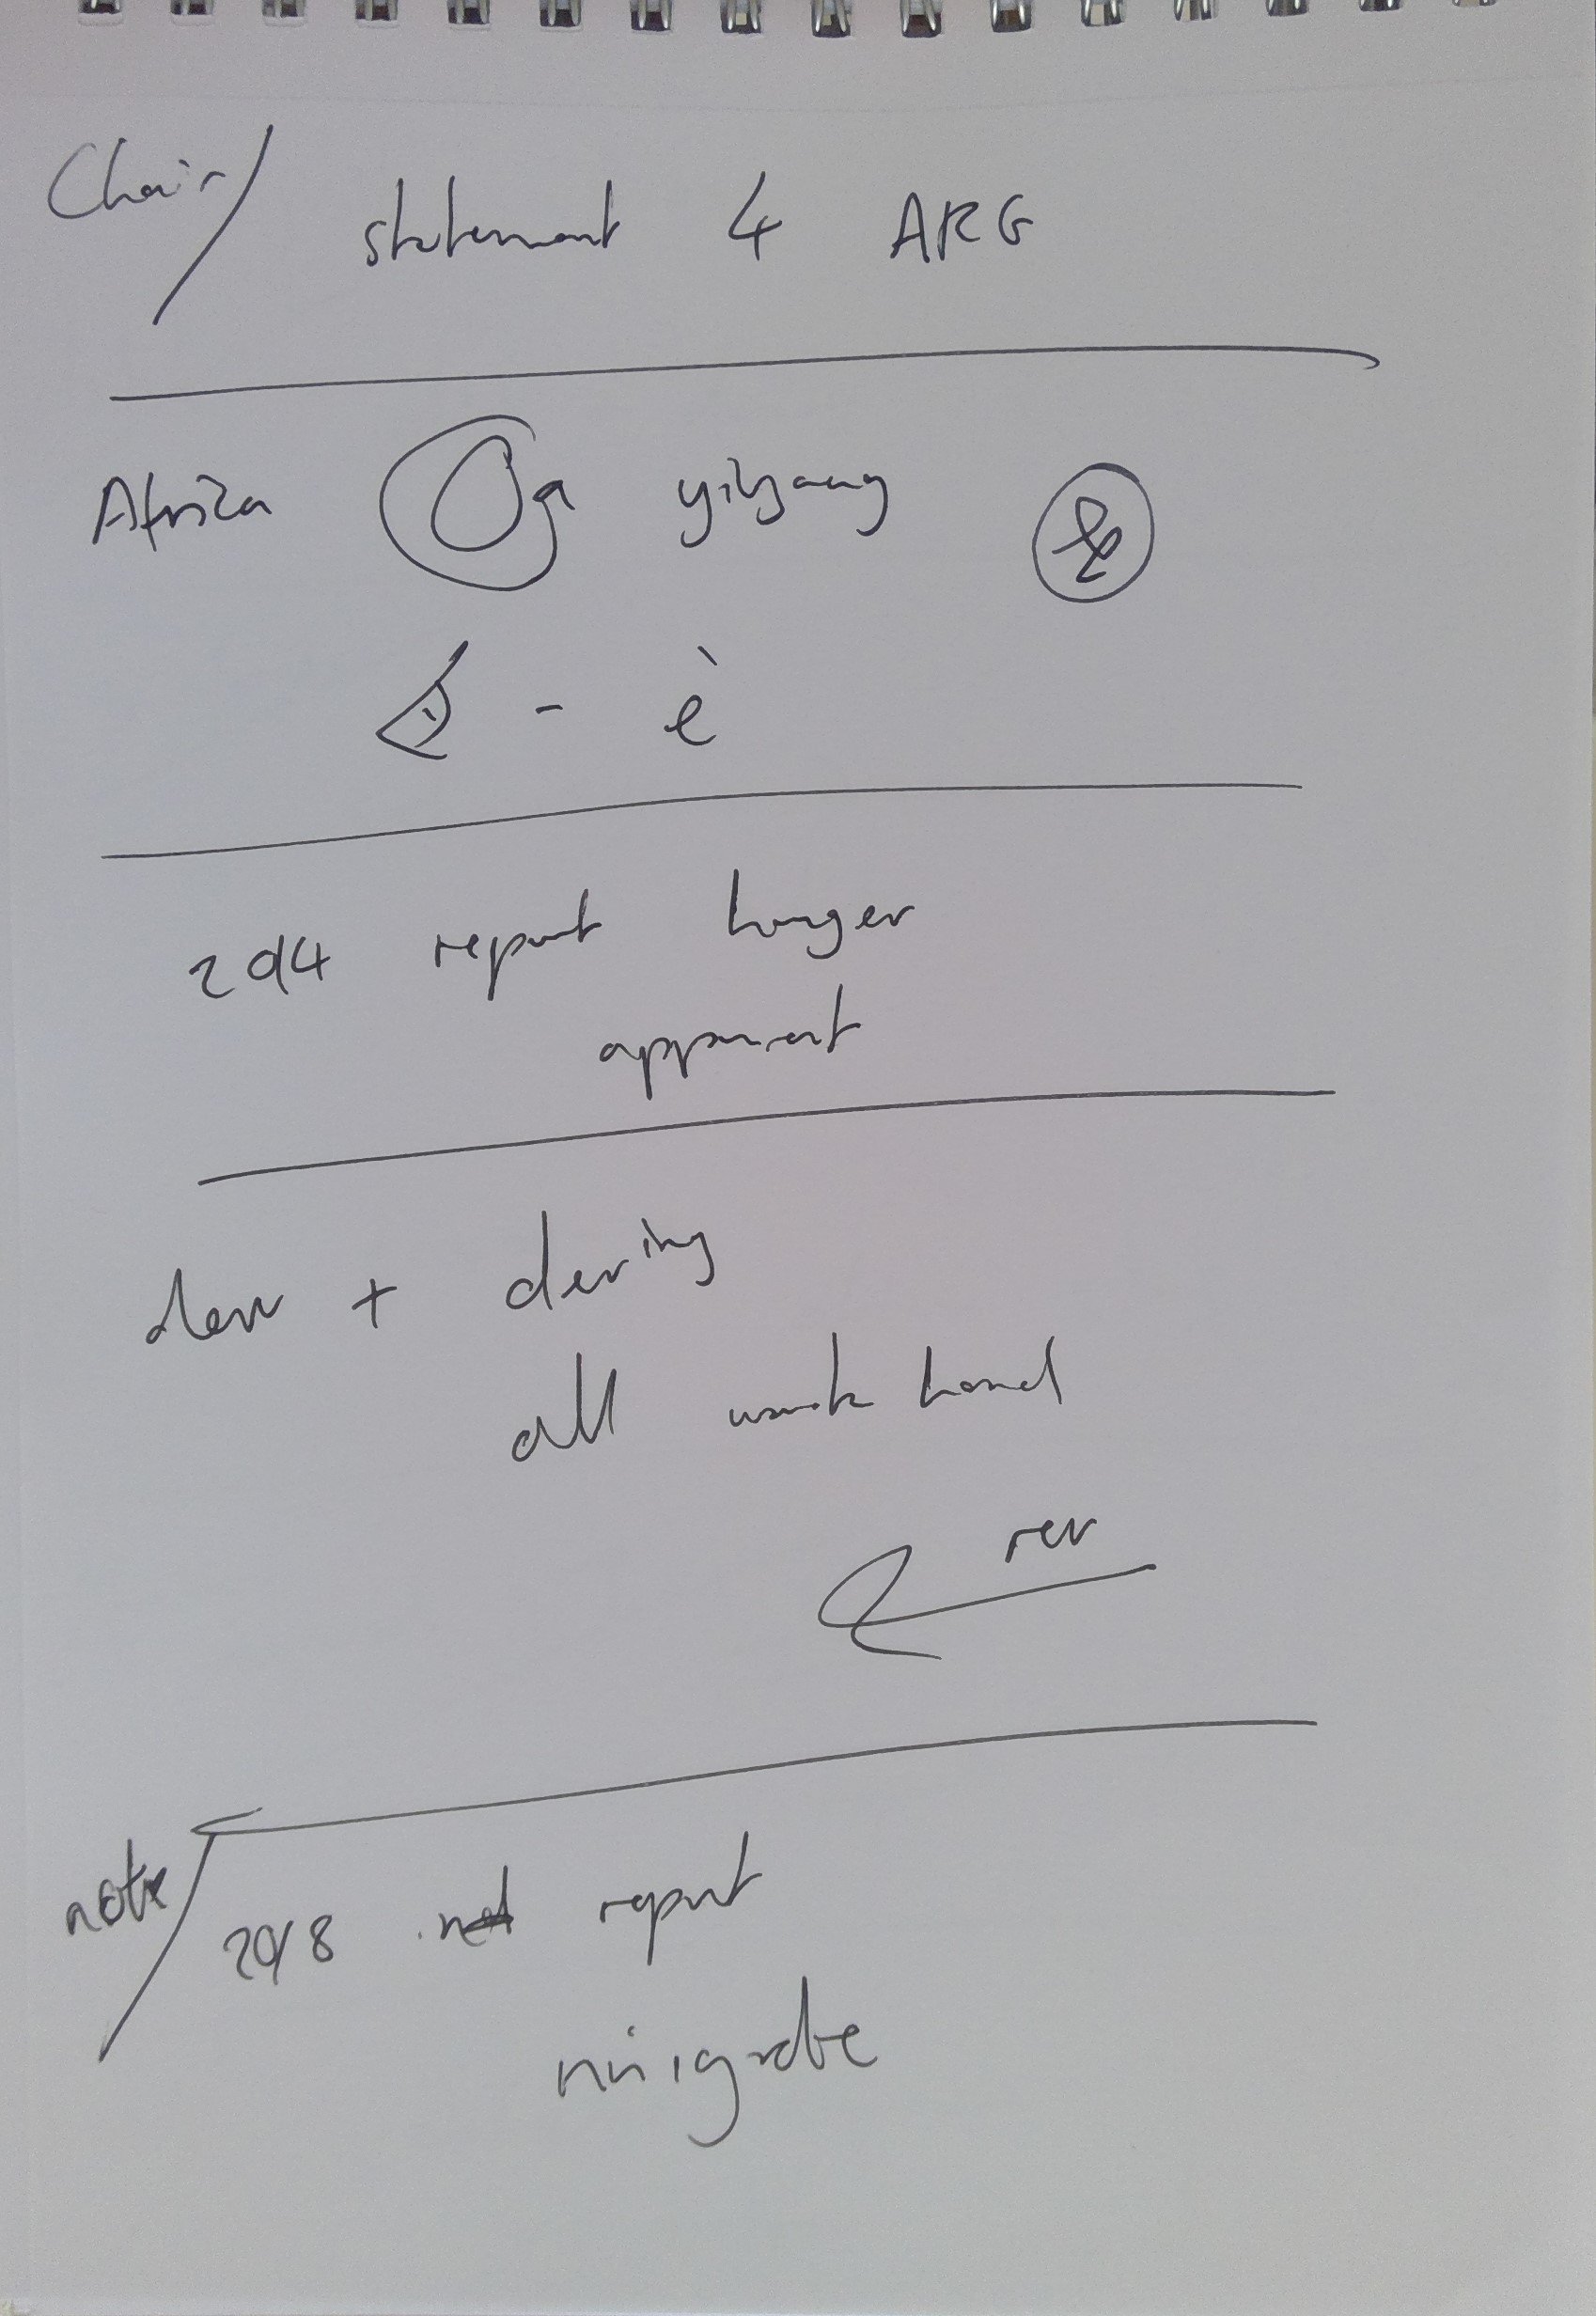 Chair/ statement 4 ARG
Africa Oa
- è
2014 report longer
apparent
dev + deving
all work hard
rev
note/ 2018 report
migrate